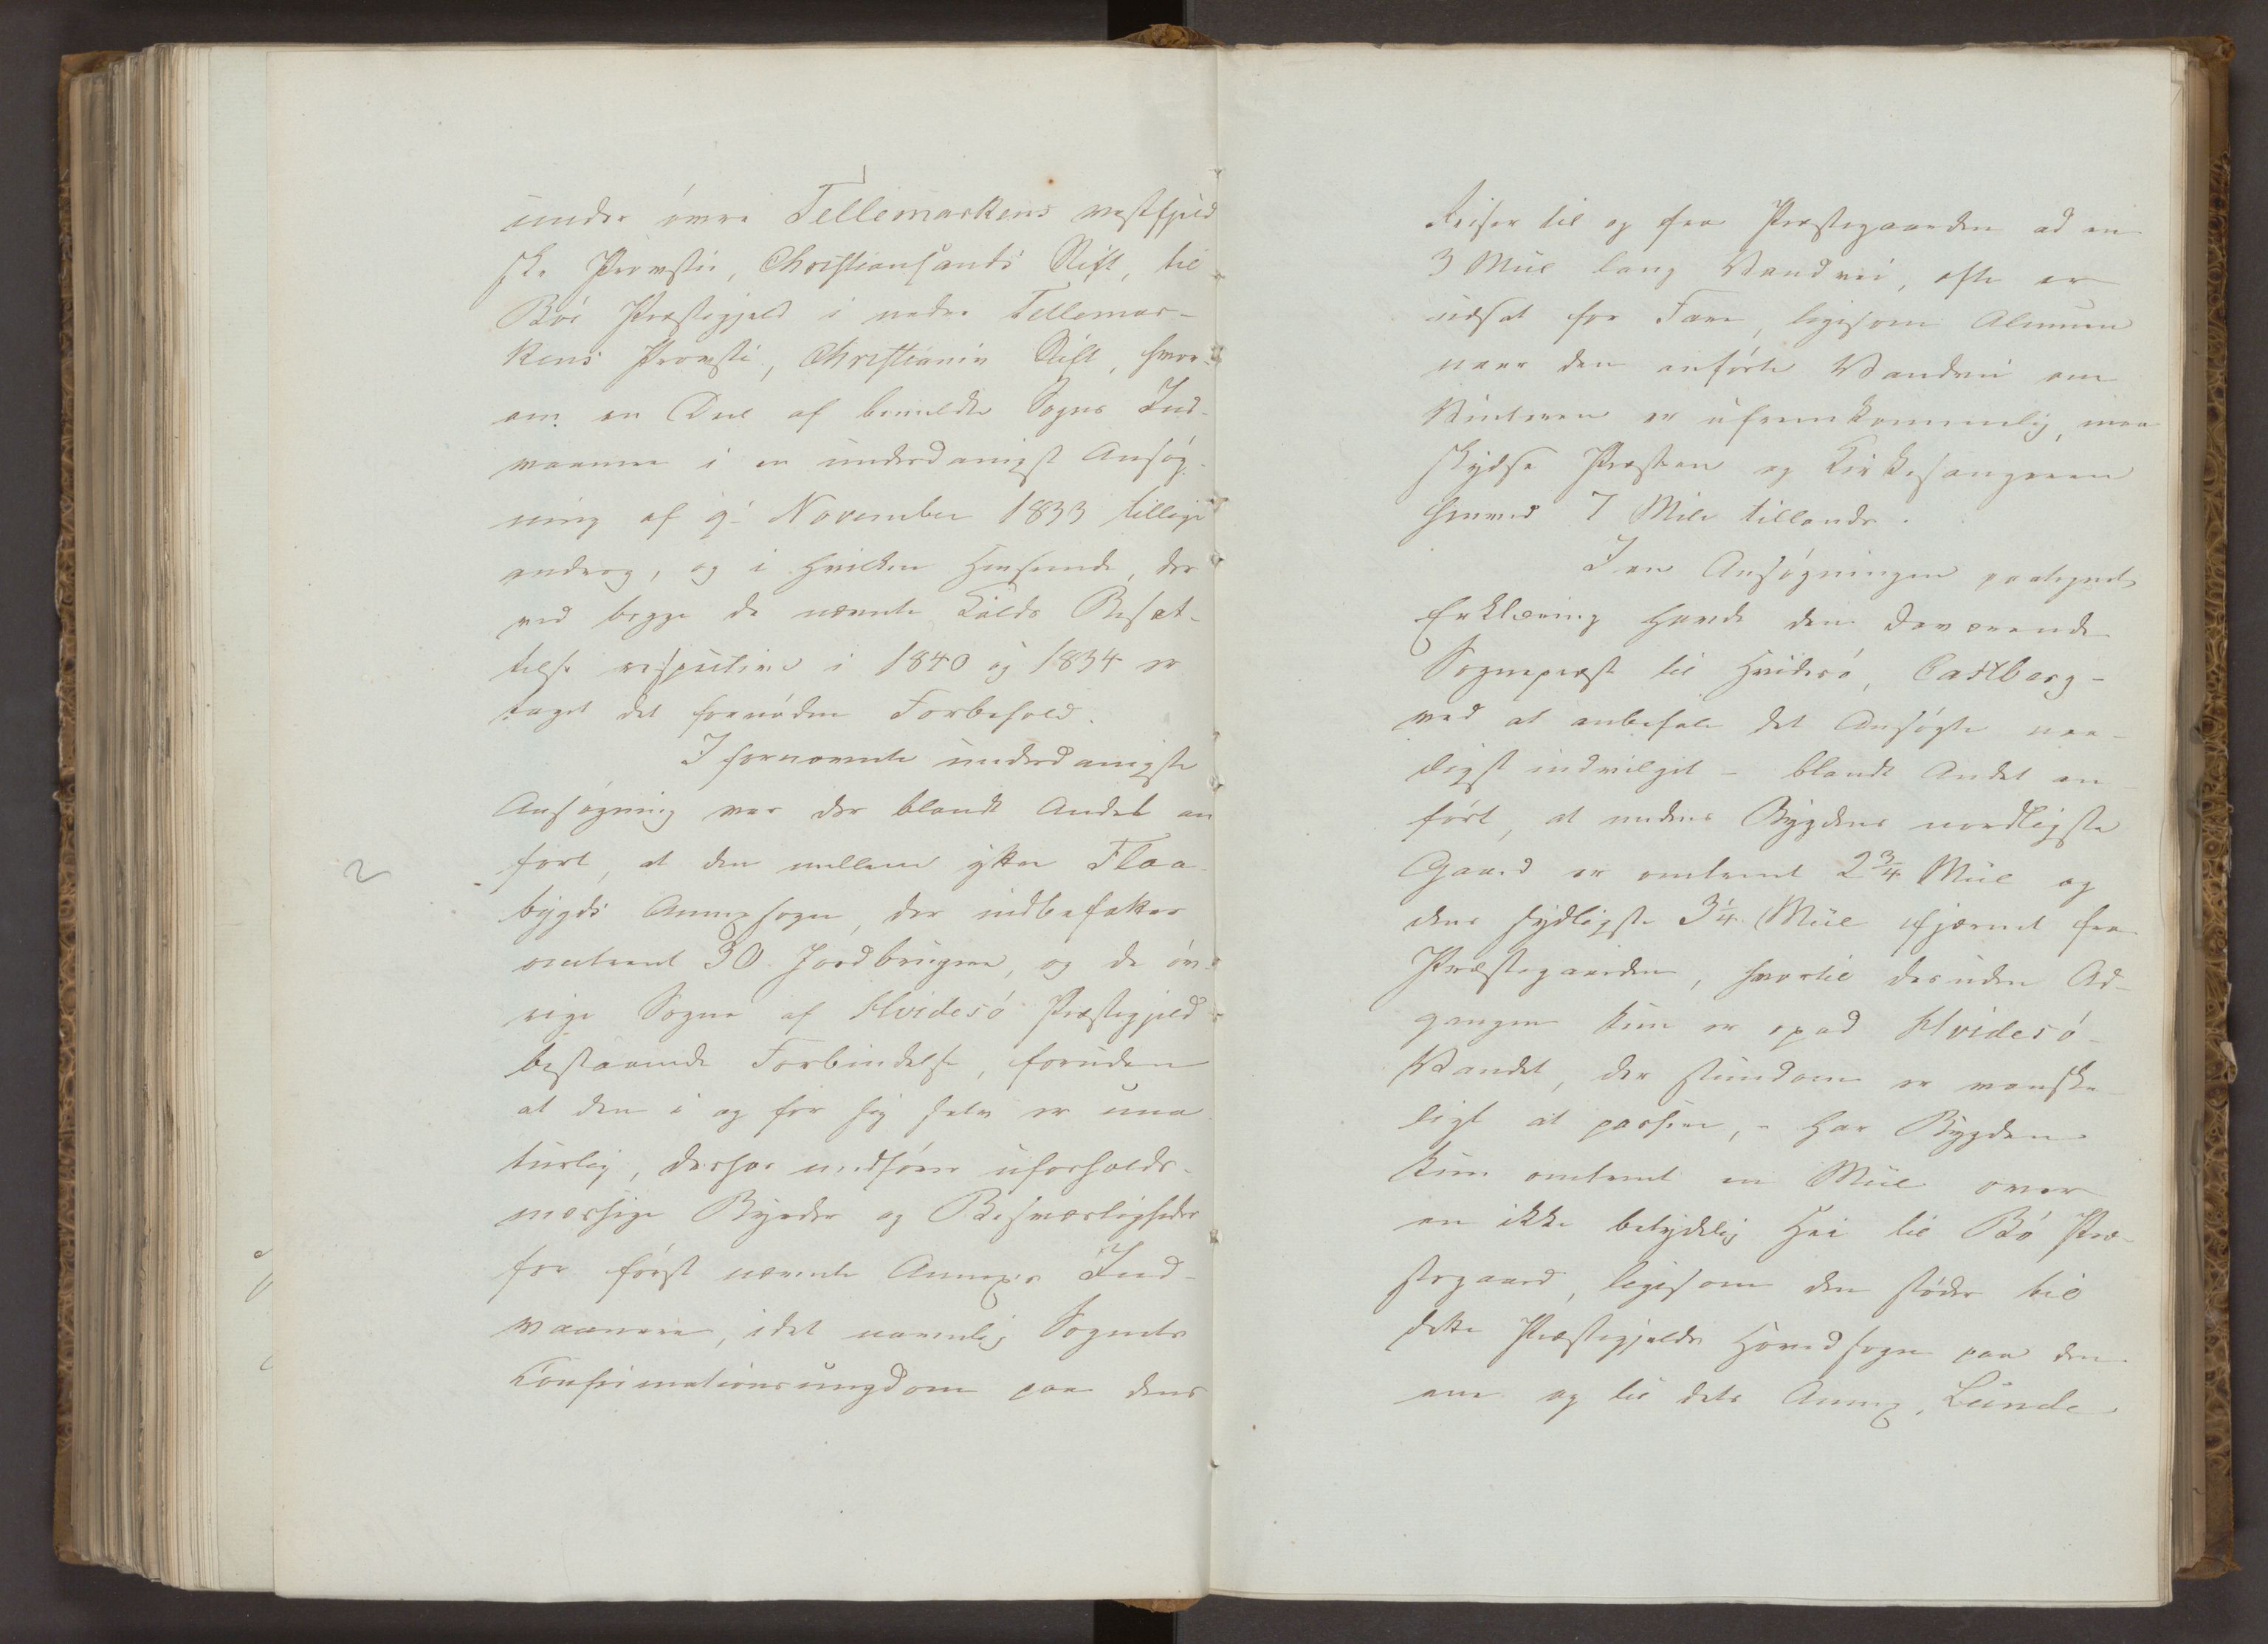 under övre Tellemarkens vestfjeld
ske Provstie, Christiansands Stift, til
Böe Præstegjeld i nedre Tellemar-
kens Provsti, Christiania Stift, hvor-
om en Deel af bemeldte Sogns Ind-
vaanere i en underdanigst Ansøg-
ning af 9de November 1833 tillige
androg, og i hvilken Henseende, der
ved begge de nævnte Kalds Besæt-
telse respective i 1840 og 1834 er
taget det fornødne Forbehold.
I fornævnte underdanigste
Ansøgning var der blandt Andet an
ført, at den mellem ytre Flaa-
bygds Annexsogn, der indbefatter
omtrent 30 Jordbrugere, og de öv-
rige Sogne af Hvidesö Præstegjeld
bestaaende Forbindelse, foruden
at den i og for sig selv er una
turlig, derhos medfører uforholds-
mæssige Byrder og Besværligheder
for först nævnte Annexes Ind-
vaanere, idet navnlig Sognets
Confirmationsungdom paa dens
2
Reiser til og fra Præstegaarden ad en
3 Miil lang Vandvei, ofte er
udsat for Fare, ligesom Almuen
naar den anførte Vandvei om
Vinteren er ufremkommelig, maa
skydse Præsten og Kirkesangeren
henved 7 Mile tillands.
I en Ansøgningen paategnet
Erklæring havde den daværende
Sognepræst til Hvidesö, Castberg -
ved at anbefale det Ansøgte naa-
digst indvilget - blandt Andet an
ført, at medens Bygdens nordligste
Gaard er omtrent 2 3/4 Miil og
dens sydligste 3 1/4 Miil fjernet fra
Præstegaarden, hvortil desuden Ad-
gangen kun er opad Hvidesö-
Vandet, der stundom er vanske
ligt at passere, - har Bygden
kun omtrent en Miil over
en ikke betydelig Hei til Bö Præ-
stegaard, ligesom den støder til
dette Præstegjelds Hovedsogn paa den
ene og til dets Annex, Lunde